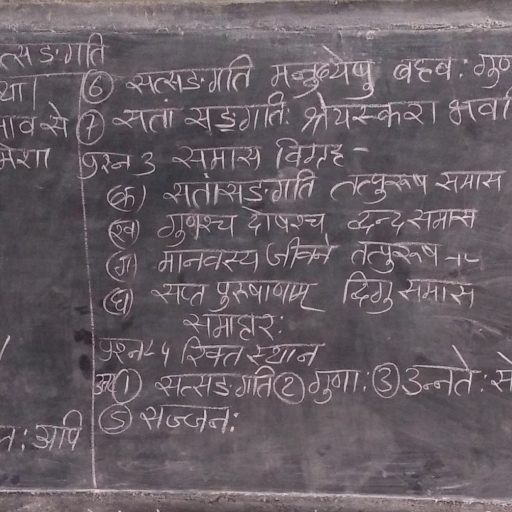 त्सङगति
या।
⑥ सत्सङगति मनुष्येषु बहव: गुण
भाव से
⑦ सतां सङ्गति: श्रेयस्करा भवति
प्रश्न 3 समास विग्रह -
(क) सतांसङगति तत्पुरूष समास
(ख) गुणश्च दोषश्च द्वन्द समास
(ग) मानवस्य जीवने तत्पुरूष -〃-
(घ) सप्त पुरूषाणाम् दिगु समास
समाहार:
प्रश्न-५ रिक्त स्थान
① सत्सङगति ② गुणा: ③ उन्नते: से
⑤ सज्जन:
अपि